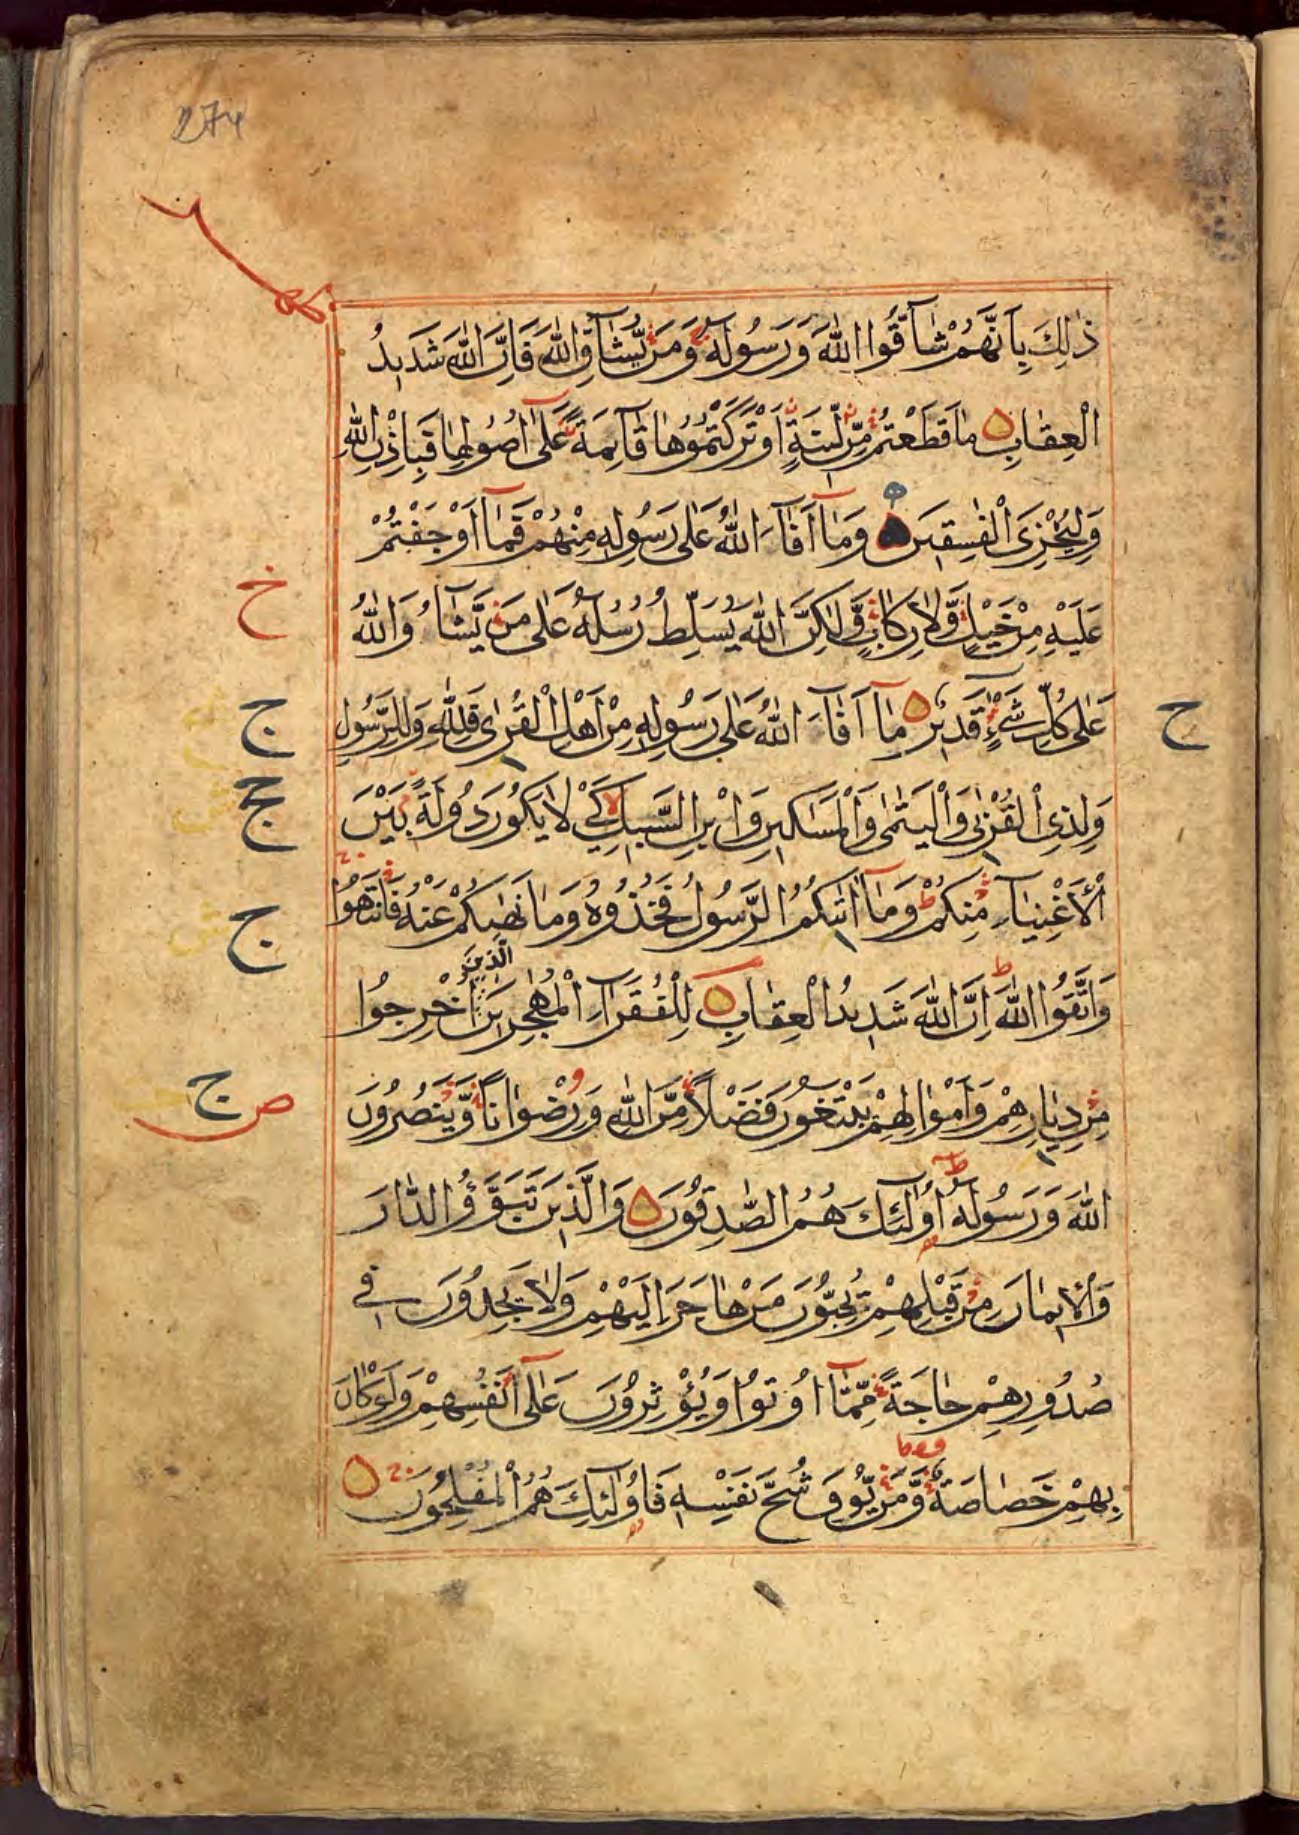 274
ذٰلِكَ بِاَنَّهُمْ شَآقُّوا اللّٰهَ وَرَسُولَهٗ وَمَنْ يُّشَآقِّ اللّٰهَ فَاِنَّ اللّٰهَ شَدِيدُ
الْعِقَابِ مَا قَطَعْتُمْ مِّنْ لِّينَةٍ اَوْ تَرَكْتُمُوهَا قَآئِمَةً عَلٰٓى اُصُولِهَا فَبِاِذْنِ اللّٰهِ
وَلِيُخْزِيَ الْفٰسِقِينَ وَمَآ اَفَآءَ اللّٰهُ عَلٰى رَسُولِهٖ مِنْهُمْ فَمَآ اَوْجَفْتُمْ
عَلَيْهِ مِنْ خَيْلٍ وَّلَا رِكَابٍ وَّلٰكِنَّ اللّٰهَ يُسَلِّطُ رُسُلَهٗ عَلٰى مَنْ يَّشَآءُ وَاللّٰهُ
خ
عَلٰى كُلِّ شَيْءٍ قَدِيرٌ مَآ اَفَآءَ اللّٰهُ عَلٰى رَسُولِهٖ مِنْ اَهْلِ الْقُرٰى فَلِلّٰهِ وَلِلرَّسُولِ
ح
ج
وَلِذِي الْقُرْبٰى وَالْيَتٰمٰى وَالْمَسَاكِينِ وَابْنِ السَّبِيلِ كَيْ لَا يَكُونَ دُولَةً بَيْنَ
الْاَغْنِيَآءِ مِنْكُمْ وَمَآ اٰتٰىكُمُ الرَّسُولُ فَخُذُوهُ وَمَا نَهٰىكُمْ عَنْهُ فَانْتَهُوا
ج
الَّذِينَ
وَاتَّقُوا اللّٰهَ اِنَّ اللّٰهَ شَدِيدُ الْعِقَابِ لِلْفُقَرَآءِ الْمُهٰجِرِينَ اُخْرِجُوا
مِنْ دِيَارِهِمْ وَاَمْوَالِهِمْ يَبْتَغُونَ فَضْلًا مِّنَ اللّٰهِ وَرِضْوَانًا وَّيَنْصُرُونَ
ص ج
اللّٰهَ وَرَسُولَهٗ اُولٰٓئِكَ هُمُ الصّٰدِقُونَ وَالَّذِينَ تَبَوَّؤُ الدَّارَ
وَالْاِيمَانَ مِنْ قَبْلِهِمْ يُحِبُّونَ مَنْ هَاجَرَ اِلَيْهِمْ وَلَا يَجِدُونَ فِي
صُدُورِهِمْ حَاجَةً مِّمَّآ اُوتُوا وَيُؤْثِرُونَ عَلٰٓى اَنْفُسِهِمْ وَلَوْ كَانَ
بِهِمْ خَصَاصَةٌ وَّمَنْ يُّوقَ شُحَّ نَفْسِهٖ فَاُولٰٓئِكَ هُمُ الْمُفْلِحُونَ